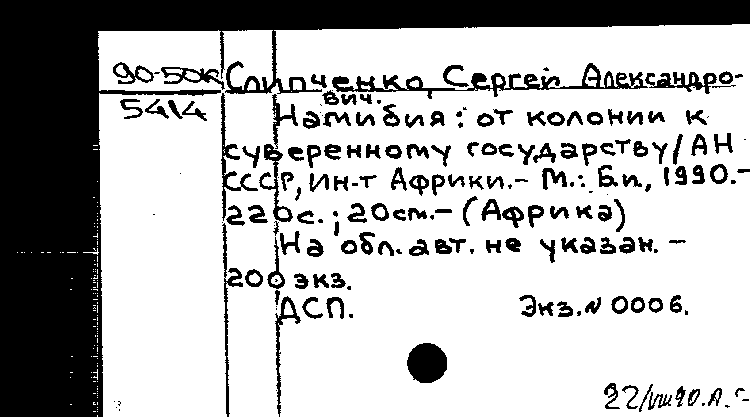 90-50к Слипченко, Сергей Александро-
5414 вич.
Намибия: от колонии к
суверенному государству/АН
СССР, Ин-т Африки.- М.: Б.и., 1990.-
220с.; 20см.- (Африка)
На обл. авт. не указан. -
200 экз.
ДСП. Экз. N 0006.
22/VIII 90. А.